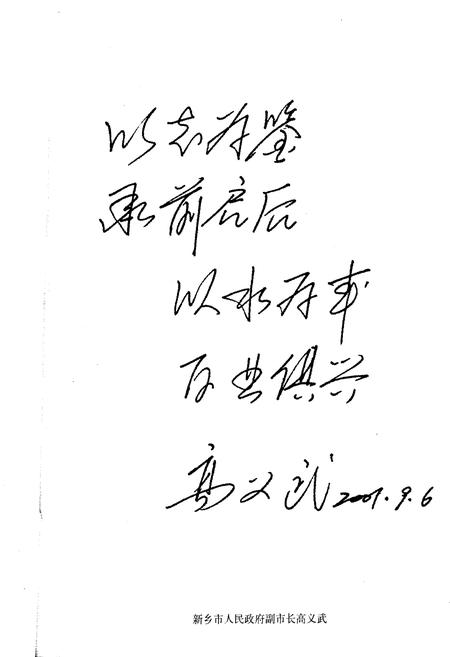 以志存鉴
承前启后
以水存丰
百业俱兴
高义武 2007.9.6
新乡市人民政府副市长高义武